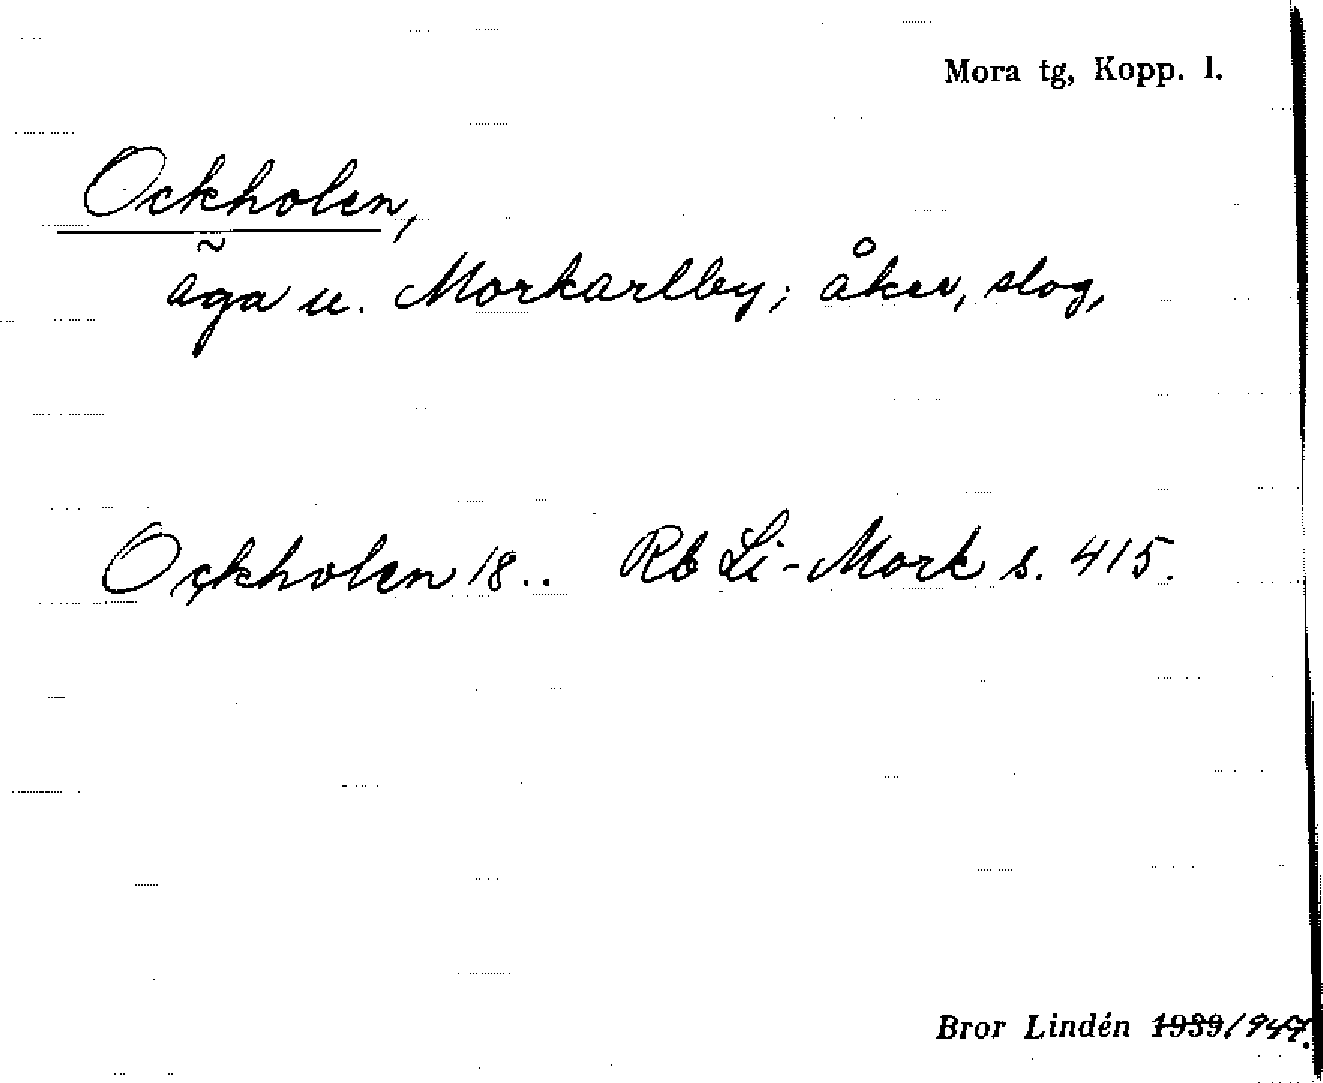 Mora tg, Kopp. l.
Ockholen,
äga u. Morkarlby; åker, slog,
Ockholen 18.. Rb Li-Mork s. 415.
Bror Lindén 1939/947.